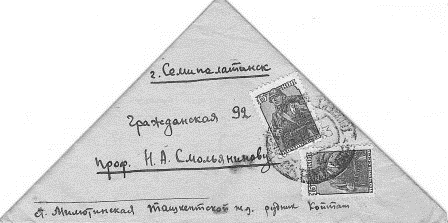 г. Семипалатинск
Гражданская 92
проф. Н. А. Смольянинову
П. Милютинская Ташкентской ж.д. рудник Койташ